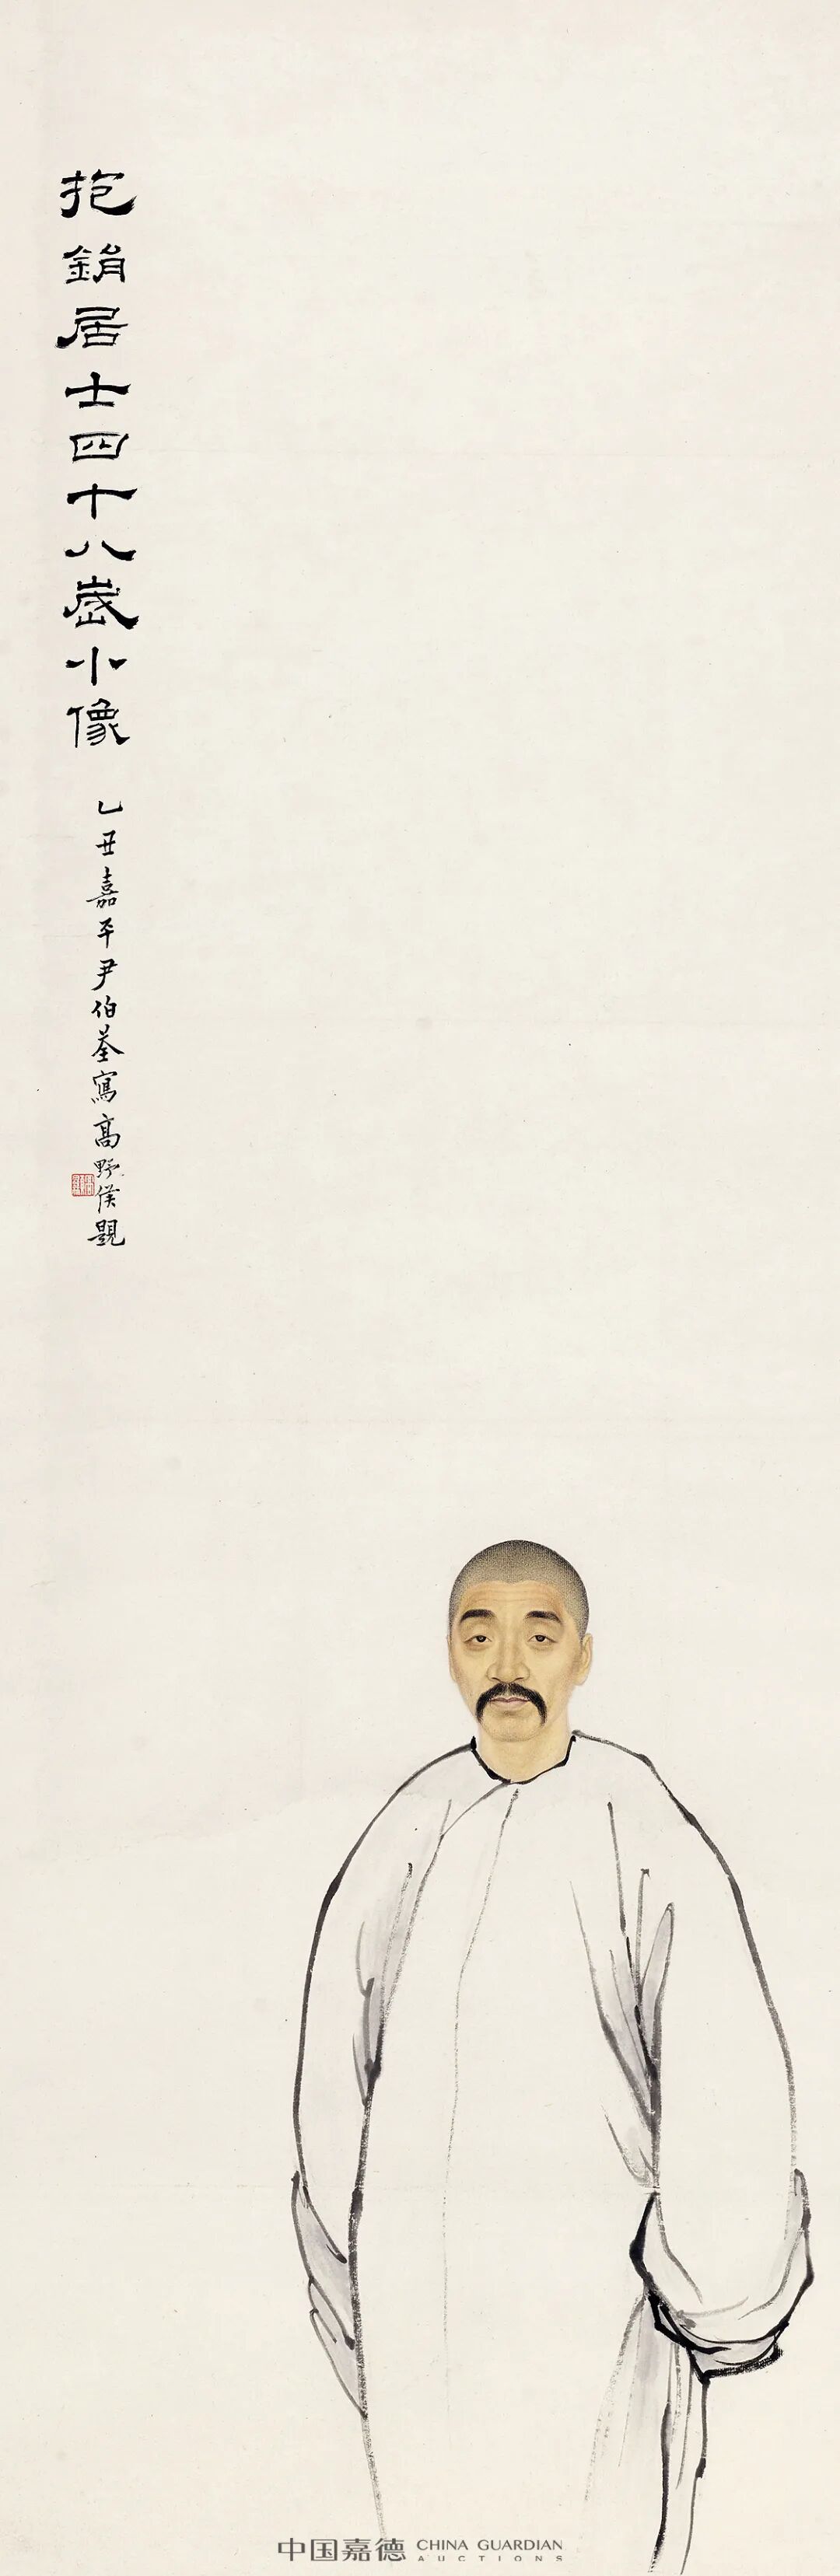 抱鋗居士四十八嵗小像
乙丑嘉平尹伯荃寫高野侯題
中国嘉德 CHINA GUARDIAN
AUCTIONS